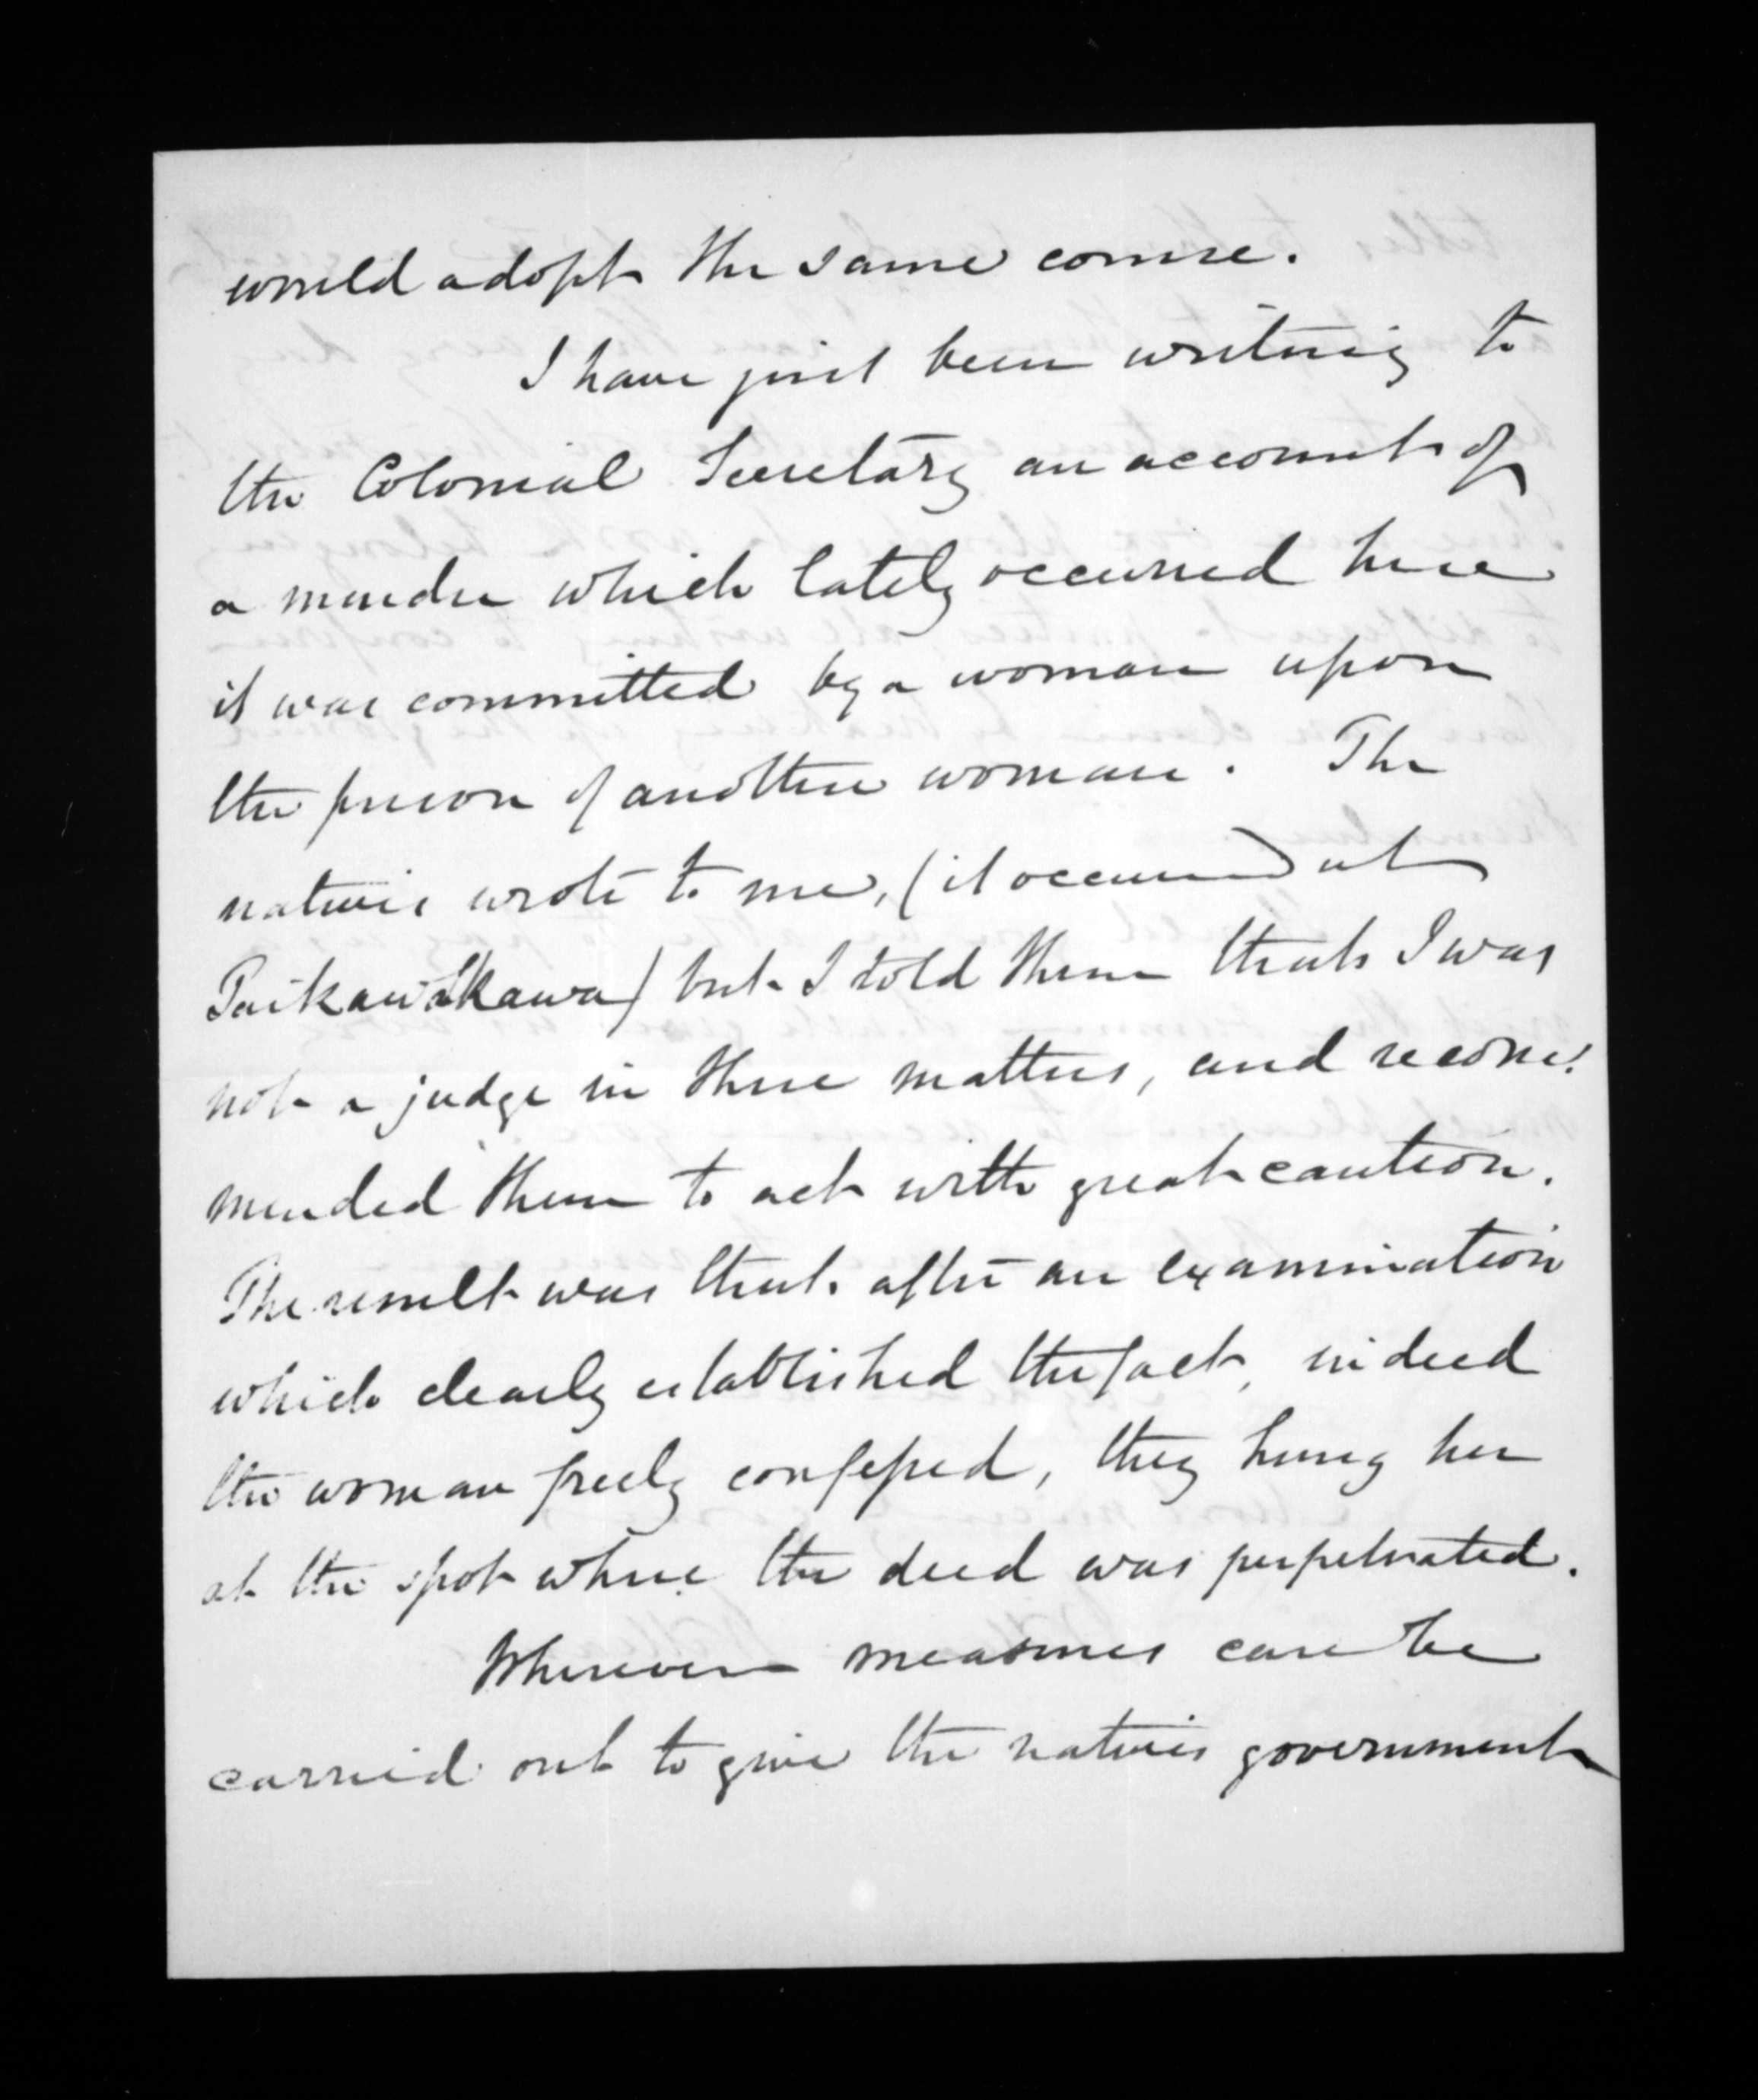 would adopt the same course.
I have just been writing to
the Colonial Secretary an account of
a murder which lately occurred here
it was committed by a woman upon
the person of another woman. The
natives wrote to me, (it occurred at
but I told them that I was
not a judge in these matters, and recom:
mended them to act with great caution.
The result was that after an examination
which clearly established the fact, indeed
the woman freely confessed, they hung her
at the spot where the deed was perpetrated.
Wherever measures can be
carried out to give the natives government